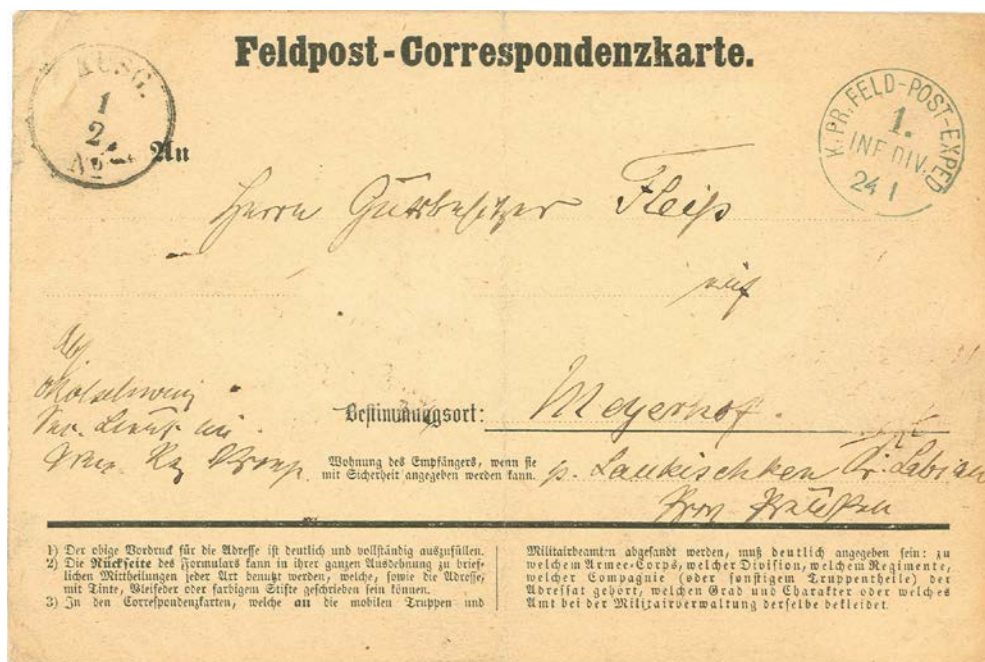 Feldpost-Correspondenzkarte.
AUSG.
1
2
K.PR.FELD-POST-EXPED
1.
INF.DIV.
24 1
An
Herrn Gutsbesitzer Fleiß
auf
Bestimmungsort: Meyerhof.
Wohnung des Empfängers, wenn sie
mit Sicherheit angegeben werden kann.
p. Laukischken Kr. Labiau
Prov. Preußen
Abs.
Sec. Lieut. im
1) Der obige Vordruck für die Adresse ist deutlich und vollständig auszufüllen.
2) Die Rückseite des Formulars kann in ihrer ganzen Ausdehnung zu brief-
lichen Mittheilungen jeder Art benutzt werden, welche, sowie die Adresse,
mit Tinte, Bleifeder oder farbigem Stifte geschrieben sein können.
3) In den Correspondenzkarten, welche an die mobilen Truppen und
Militairbeamten abgesandt werden, muß deutlich angegeben sein: zu
welchem Armee-Corps, welcher Division, welchem Regimente,
welcher Compagnie (oder sonstigem Truppentheile) der
Adressat gehört, welchen Grad und Charakter oder welches
Amt bei der Militairverwaltung derselbe bekleidet.